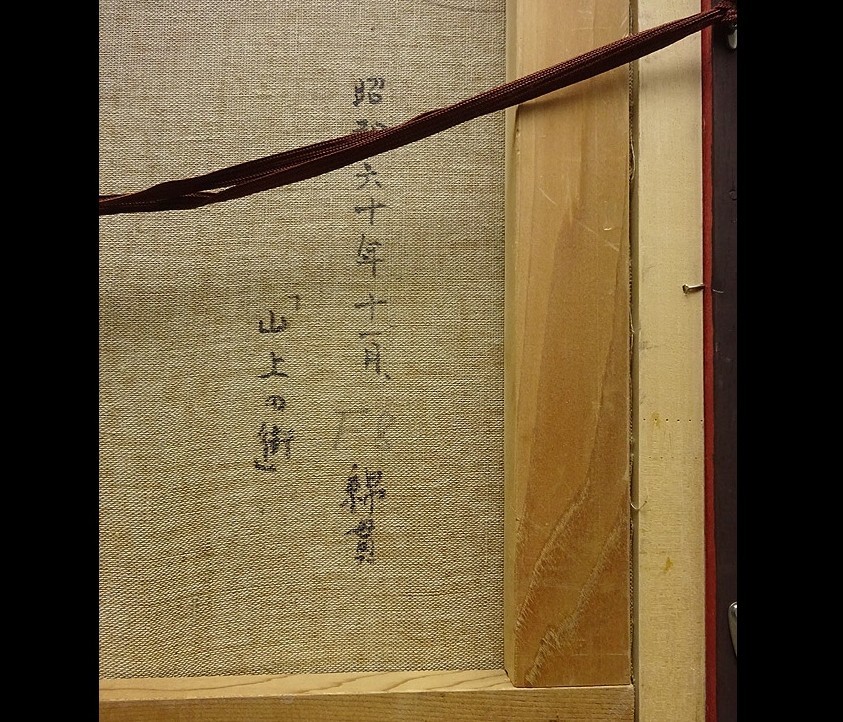 昭和六十年十一月、F8 綿貫
「山上の街」